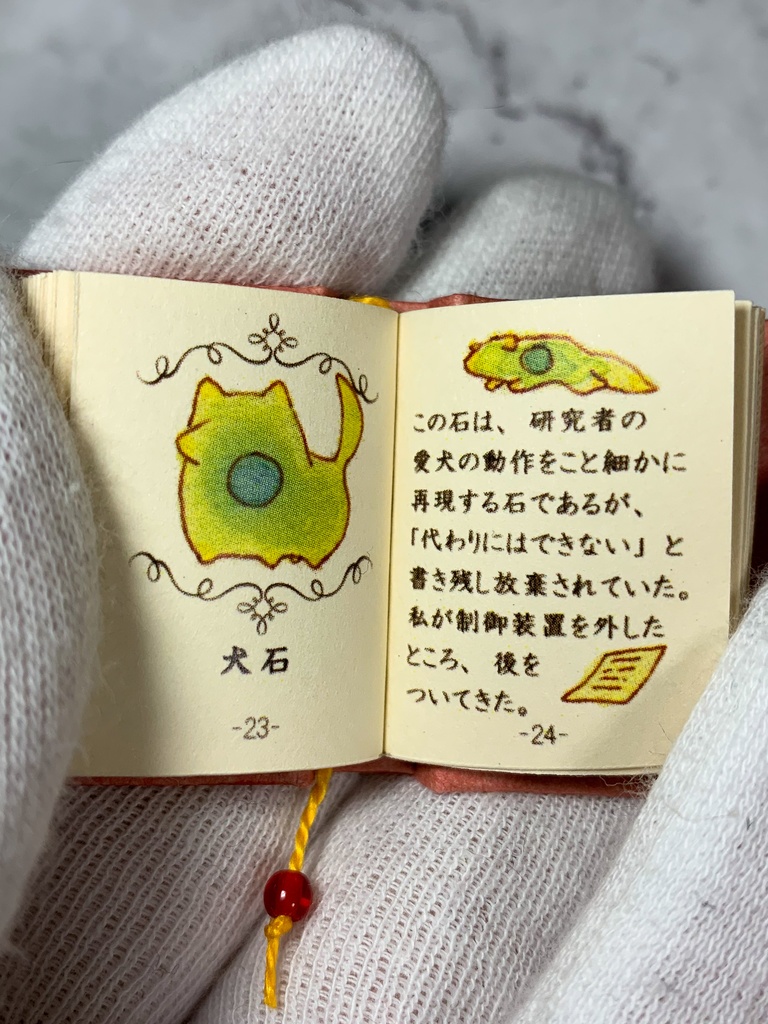 犬石
-23-
この石は、研究者の
愛犬の動作をこと細かに
再現する石であるが、
「代わりにはできない」と
書き残し放棄されていた。
私が制御装置を外した
ところ、後を
ついてきた。
-24-